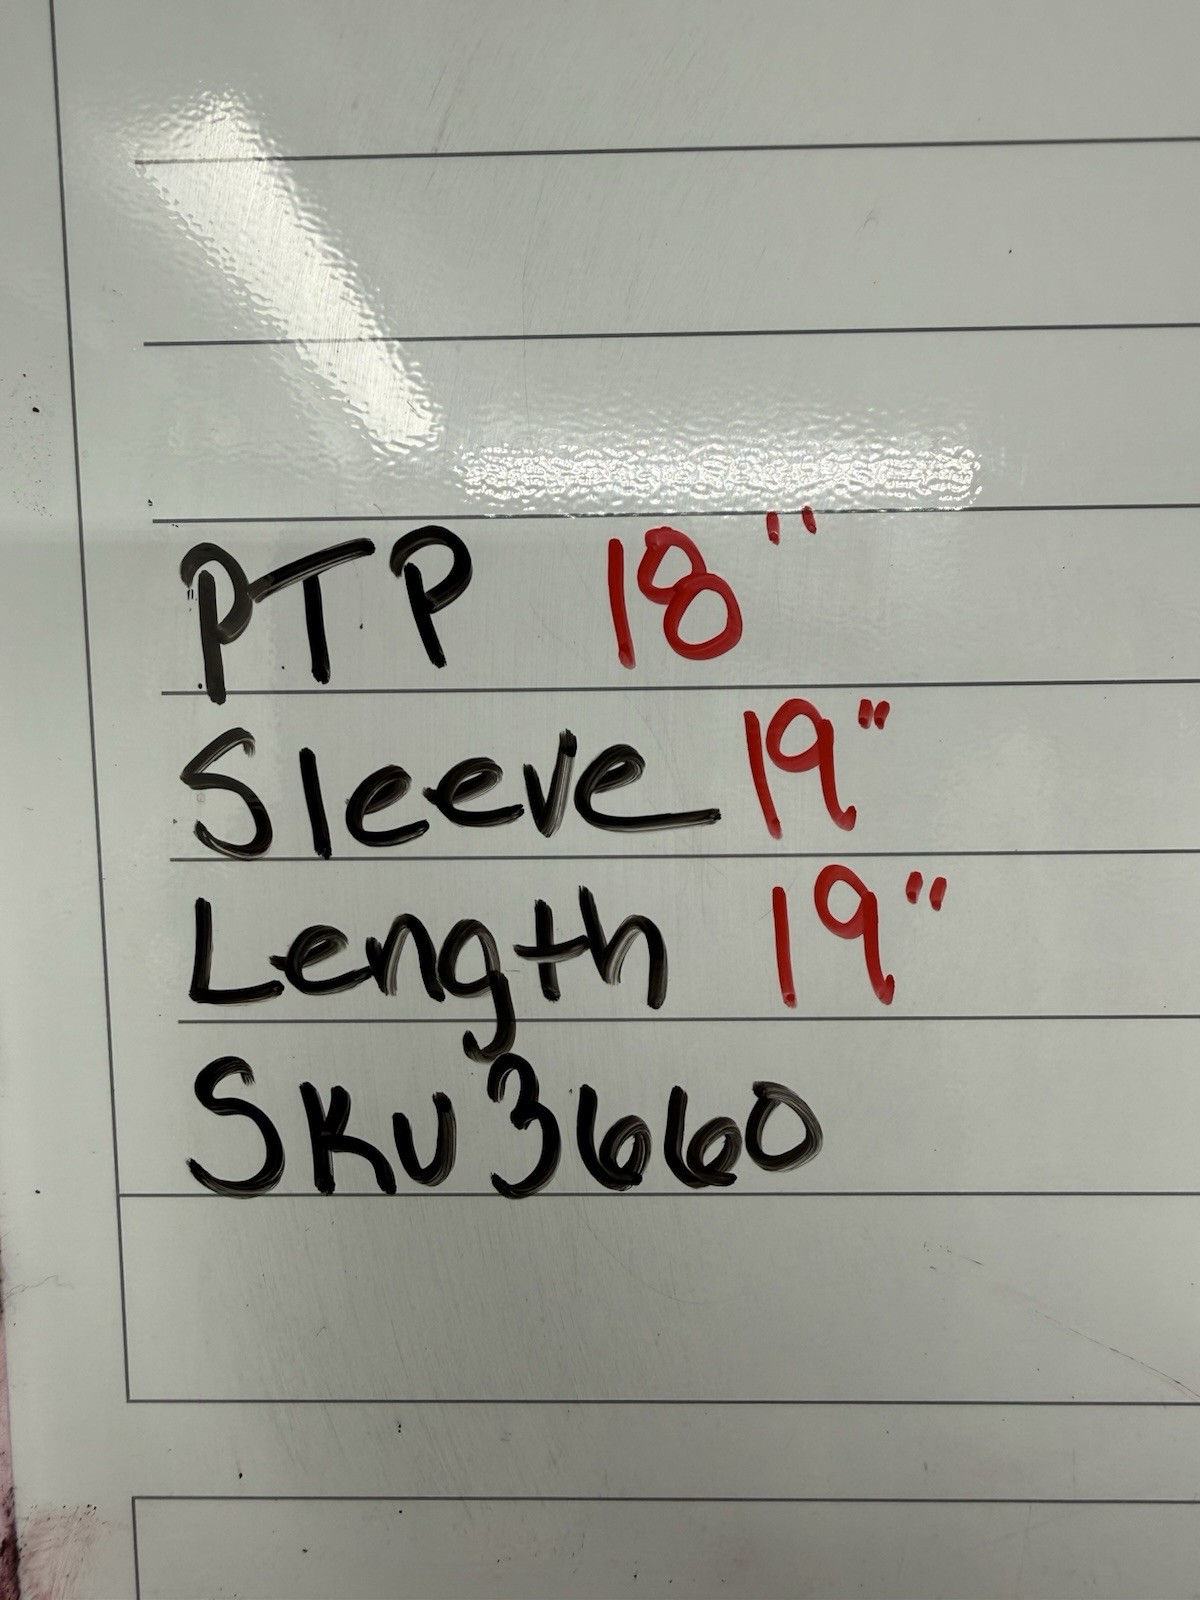 PTP 18"
Sleeve 19"
Length 19"
SKU 3660